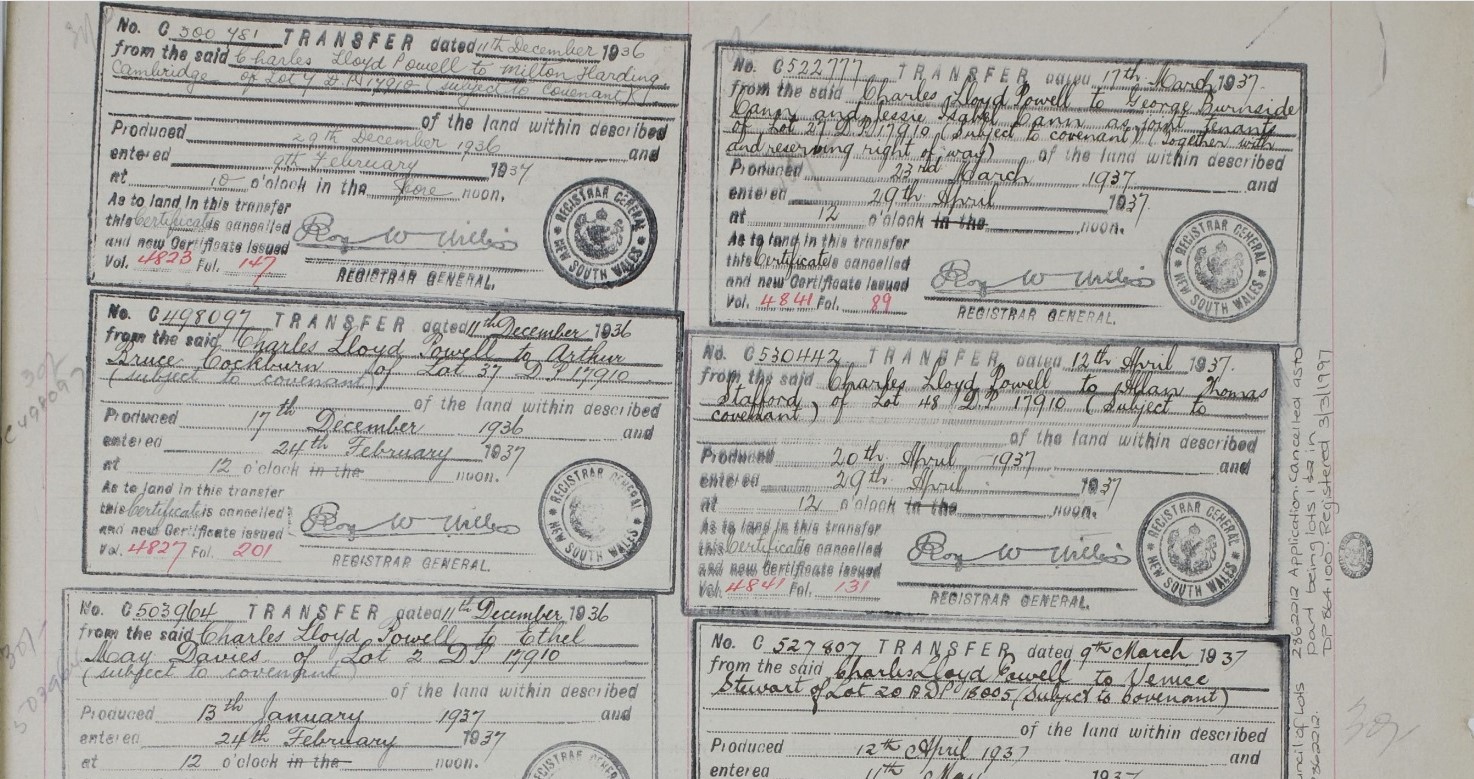 No. C 500481 TRANSFER dated 11th December 1936
from the said Charles Lloyd Powell to Milton Harding
Cambridge of Lot 9 D.P. 17910 (subject to Covenant)
of the land within described
Produced 29th December 1936 and
entered 9th February 1937
at 10 o'clock in the fore noon.
As to land in this transfer
this Certificate is cancelled
and new Certificate issued
Vol. 4823 Fol. 147
Roy W Willis
REGISTRAR GENERAL.
REGISTRAR GENERAL NEW SOUTH WALES
No. C 498097 TRANSFER dated 11th December 1936
from the said Charles Lloyd Powell to Arthur
Bruce Cockburn of Lot 37 D P 17910
(subject to covenant)
of the land within described
Produced 17th December 1936 and
entered 24th February 1937
at 12 o'clock in the noon.
As to land in this transfer
this Certificate is cancelled
and new Certificate issued
Vol. 4827 Fol. 201
Roy W Willis
REGISTRAR GENERAL.
REGISTRAR GENERAL NEW SOUTH WALES
C498097
No. C 503964 TRANSFER dated 11th December 1936
from the said Charles Lloyd Powell to Ethel
May Davies of Lot 2 D P 17910
(subject to covenant)
of the land within described
Produced 13th January 1937 and
entered 24th February 1937
at 12 o'clock in the noon.
REGISTRAR GENERAL
No. C 522777 TRANSFER dated 17th March 1937.
from the said Charles Lloyd Powell to George Burnside
Cann and Jessie Isabel Cann as joint tenants
of Lot 27 D.P. 17910 (Subject to covenant) (together with
and reserving right of way) of the land within described
Produced 23rd March 1937 and
entered 29th April 1937.
at 12 o'clock in the noon.
As to land in this transfer
this Certificate is cancelled
and new Certificate issued
Vol. 4841 Fol. 89
Roy W Willis
REGISTRAR GENERAL.
REGISTRAR GENERAL NEW SOUTH WALES
No. C 530442 TRANSFER dated 12th April 1937.
from the said Charles Lloyd Powell to Allan Thomas
Stafford of Lot 48 D P 17910 (Subject to
covenant)
of the land within described
Produced 20th April 1937 and
entered 29th April 1937
at 12 o'clock in the noon.
As to land in this transfer
this Certificate is cancelled
and new Certificate issued
Vol. 4841 Fol. 131
Roy W Willis
REGISTRAR GENERAL.
REGISTRAR GENERAL NEW SOUTH WALES
No. C 527807 TRANSFER dated 9th March 1937
from the said Charles Lloyd Powell to Venice
Stewart of Lot 20 D P 18005 (Subject to Covenant)
of the land within described
Produced 12th April 1937 and
entered 11th May 1937
2862212 Application. Cancelled as to
part being lots 1 & 2 in
DP 864100. Registered 3/3/1997